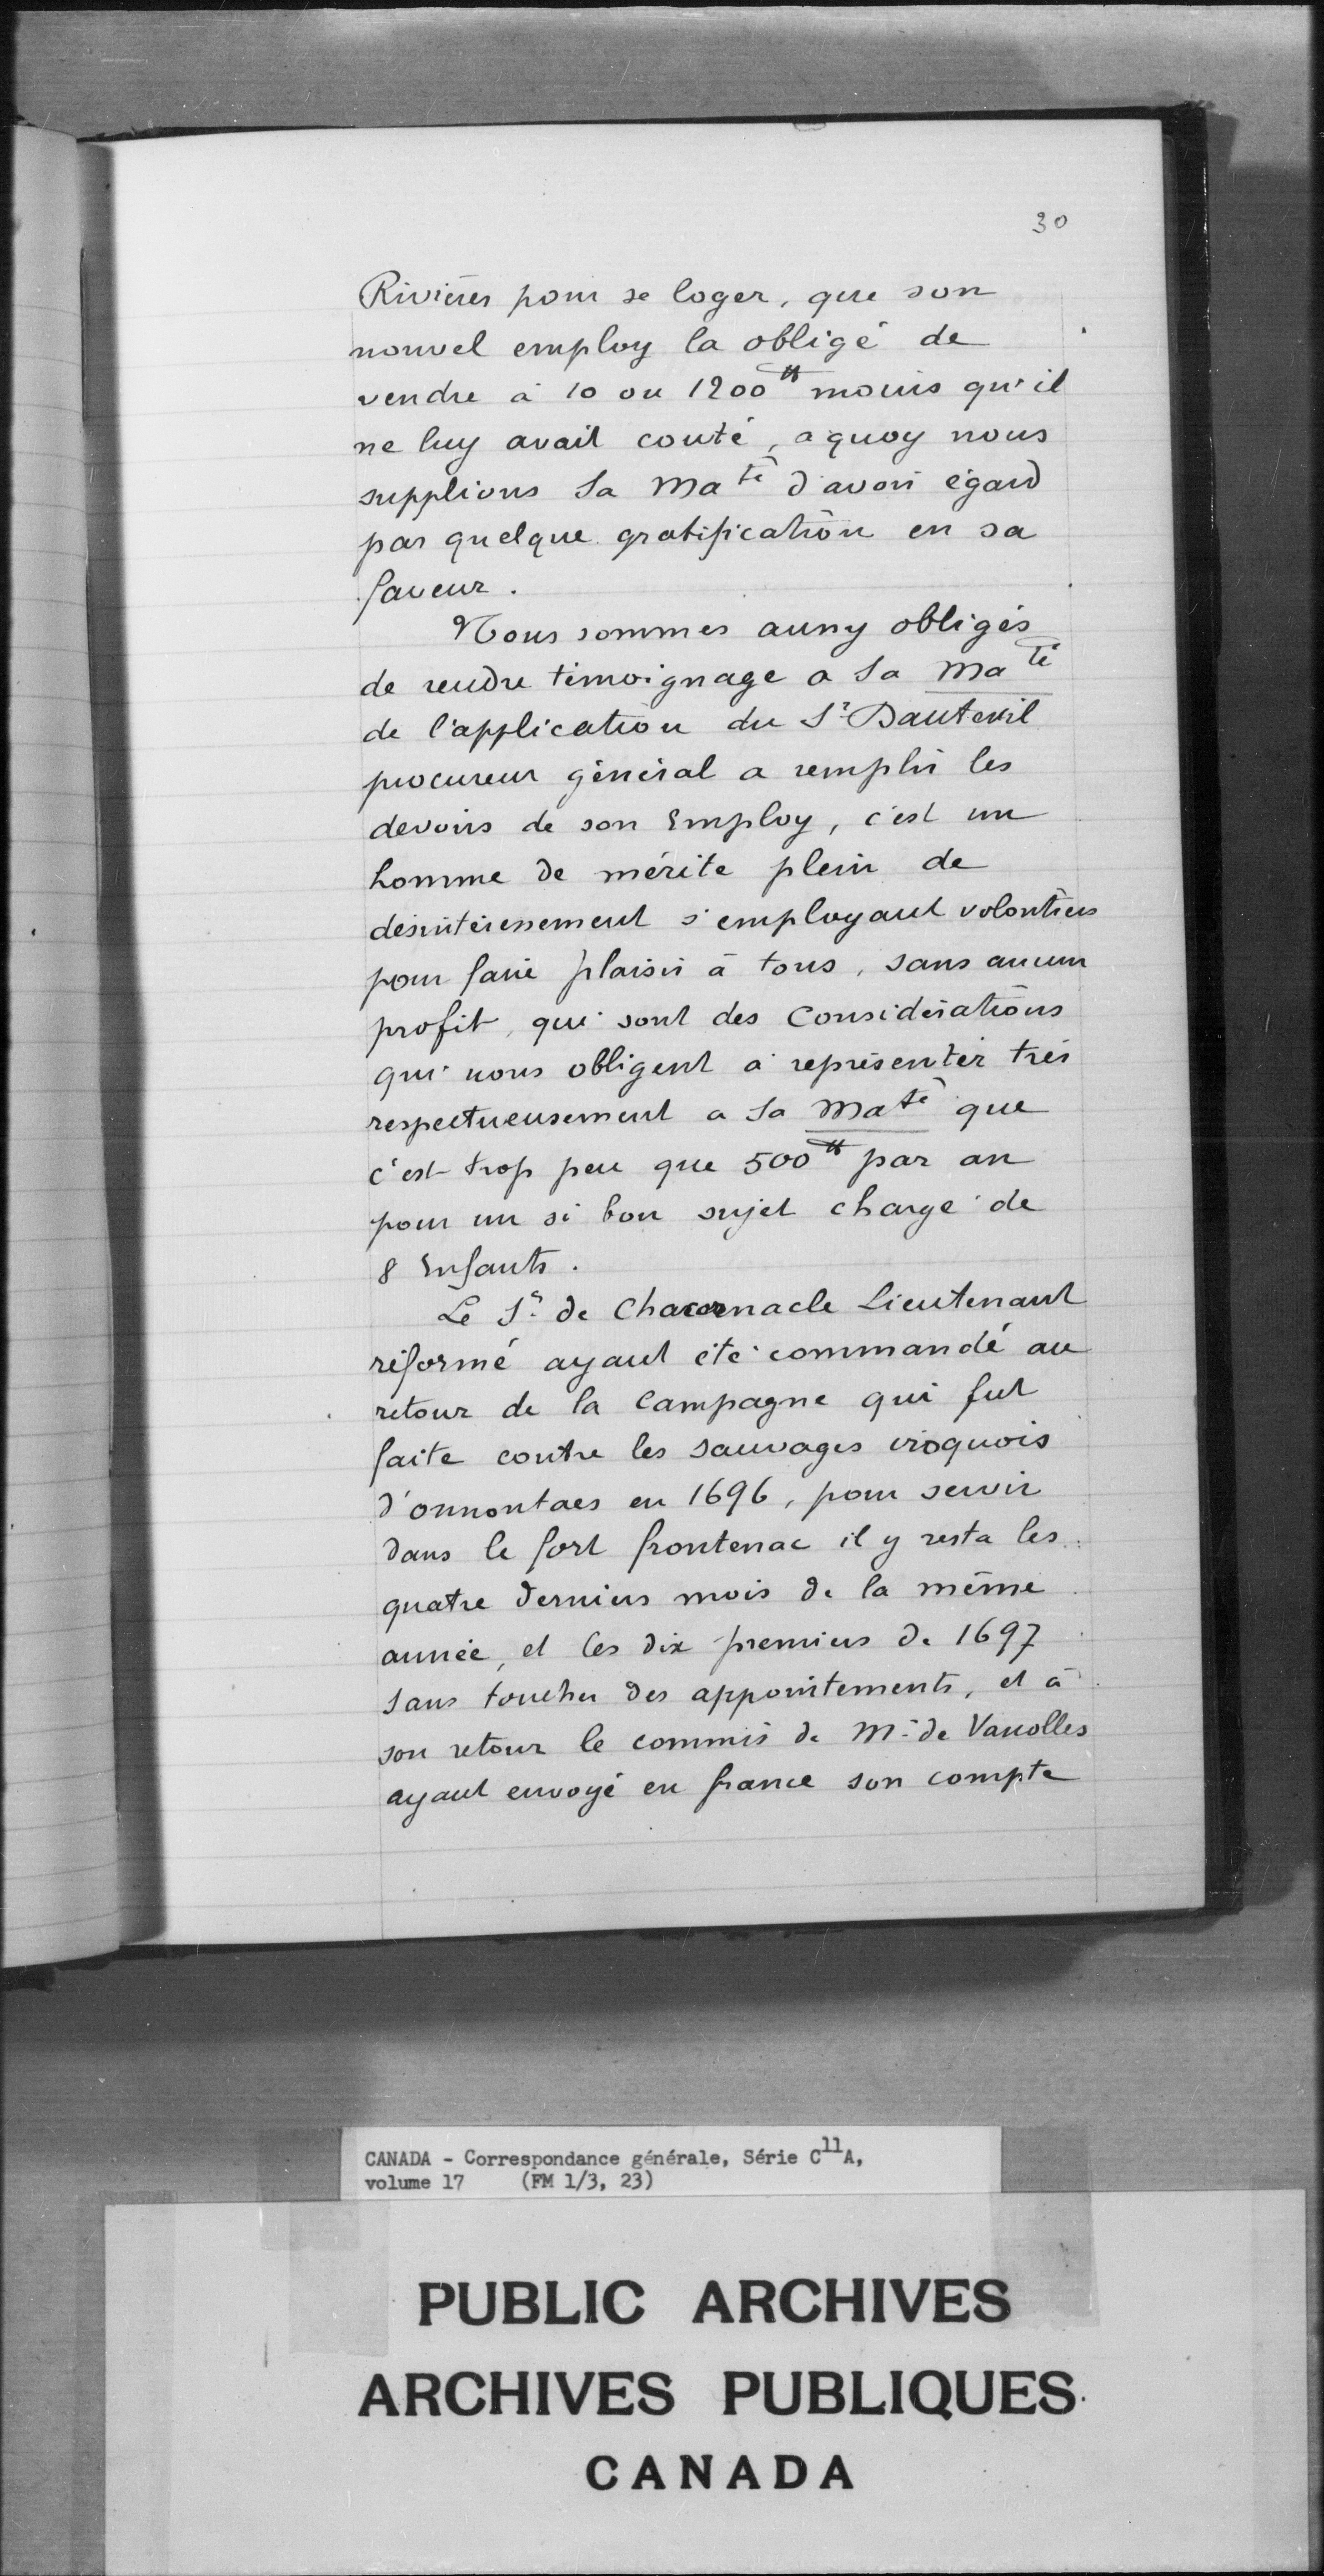 30
Rivières pour se loger, que son
nouvel employ la obligé de
vendre à 10 ou 1200tt moins qu'il
ne luy avait couté, a quoy nous
supplions Sa Maté d'avoir égard
par quelque gratification en sa
faveur.
Nous sommes aussy obligés
de rendre témoignage a Sa Maté
de l'application du Sr Dauteuil
procureur général a remplir les
devoirs de son Employ, c'est un
homme de mérite plein de
désintéressement s'employant volontiers
pour faire plaisir à tous, sans aucun
profit, qui sont des Considérations
qui nous obligent à représenter très
respectueusement a Sa Maté que
c'est trop peu que 500tt par an
pour un si bon sujet chargé de
8 Enfants.
Le Sr de Chacornacle Lieutenant
réformé ayant été commandé au
retour de la Campagne qui fut
faite contre les Sauvages iroquois
d'onnontaes en 1696, pour servir
dans le fort frontenac il y resta les
quatre derniers mois de la même
année, et les dix premiers de 1697
sans toucher des appointements, et à
son retour le commis de M. de Vanolles
ayant envoyé en france son compte
CANADA - Correspondance générale, Série C11A,
volume 17 (FM 1/3, 23)
PUBLIC ARCHIVES
ARCHIVES PUBLIQUES
CANADA